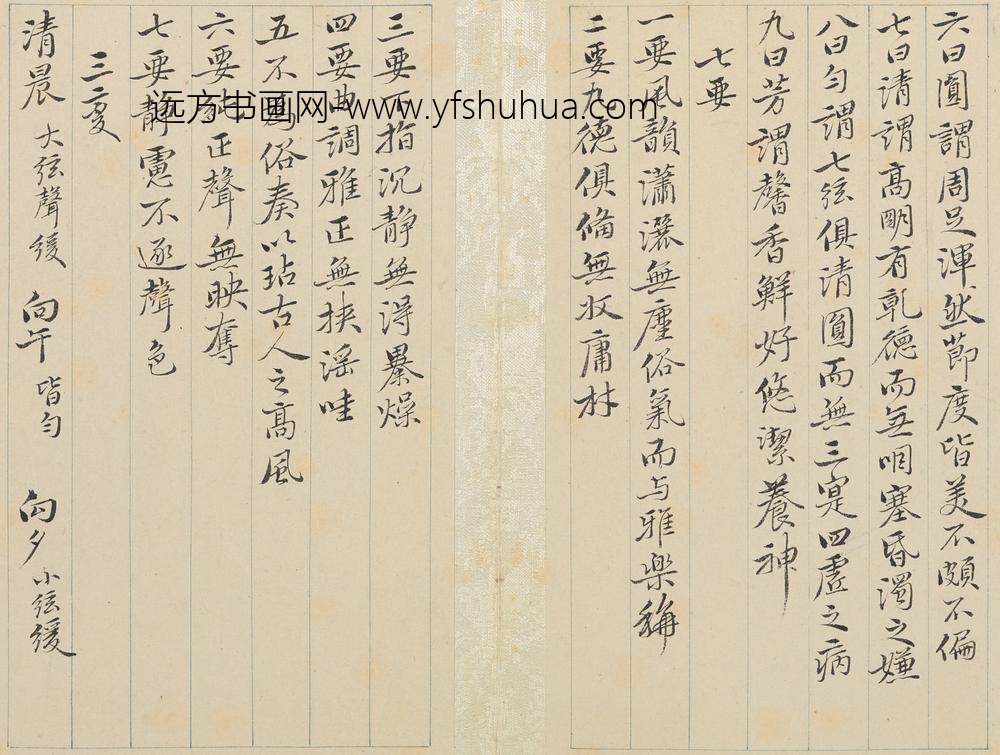 六曰圓謂周足渾然節度皆美不頗不偏
七曰清謂高明有乾德而无咽塞昏濁之嫌
八曰勻謂七弦俱清圓而無三寔四虛之病
九曰芳謂馨香鮮好悠潔養神
七要
一要風韻瀟灑無塵俗氣而与雅樂稱
二要九德俱備無收庸材
三要指沉静無得暴燥
四要曲調雅正無挾滛哇
五不為俗奏以玷古人之高風
六要正聲無映奪
七要静慮不逐聲色
三变
清晨 大弦聲緩 向午 皆勻 向夕 小弦緩
远方书画网-www.yfshuhua.com